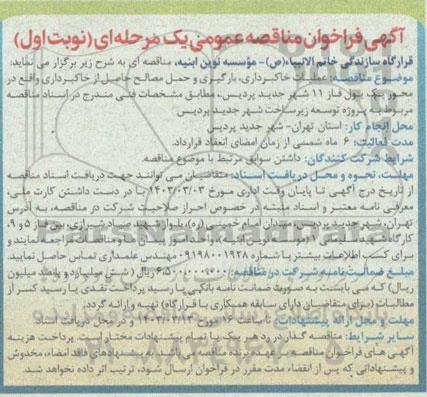 آگهی فراخوان مناقصه عمومی یک مرحله‌ای (نوبت اول)
قرارگاه سازندگی خاتم الانبیاء(ص)- مؤسسه نوین ابنیه، مناقصه ای به شرح زیر برگزار می نماید:
موضوع مناقصه: عملیات خاکبرداری، بارگیری و حمل مصالح حاصل از خاکبرداری واقع در
محور پیک پول فاز ۱۱ شهر جدید پردیس، مطابق مشخصات فنی مندرج در اسناد مناقصه
مربوط به پروژه توسعه زیرساخت شهر جدید پردیس
محل انجام کار: استان تهران- شهر جدید پردیس
مدت فعالیت: ۶ ماه شمسی از زمان امضای انعقاد قرارداد.
شرایط شرکت کنندگان: داشتن سوابق مرتبط با موضوع مناقصه.
مهلت، نحوه و محل دریافت اسناد: متقاضیان می توانند جهت دریافت اسناد مناقصه
از تاریخ درج آگهی تا پایان وقت اداری مورخ ۱۴۰۳/۰۳/۰۳ با در دست داشتن کارت ملی،
معرفی نامه معتبر و اسناد مثبته در خصوص احراز صلاحیت شرکت در مناقصه، به آدرس
تهران، شهر جدید پردیس، میدان امام خمینی (ره)، بلوار شهید صیاد شیرازی، بین فاز ۵ و ۹،
کارگاه شهید سلیمانی ۱ (موسسه نوین ابنیه)، واحد امور پیمان و مناقصات مراجعه نمایند و
برای کسب اطلاعات بیشتر با شماره ۰۹۱۹۸۰۰۱۹۲۸ مهندس علمداری تماس حاصل نمایند.
مبلغ ضمانت نامه شرکت در مناقصه: ۶،۵۰۰،۰۰۰،۰۰۰ ریال (شش میلیارد و پانصد میلیون
ریال) که می بایست به صورت ضمانت نامه بانکی یا رسید پرداخت نقدی یا رسید کسر از
مطالبات (برای متقاضیان دارای سابقه همکاری با قرارگاه) تهیه و ارائه گردد.
مهلت و محل ارائه پیشنهادات: تا ساعت ۱۶ مورخ ۱۴۰۳/۰۳/۱۳ و در محل دریافت اسناد
سایر شرایط: مناقصه گذار در رد هر یک یا تمام پیشنهادات مختار است. پرداخت هزینه
آگهی های فراخوان مناقصه بر عهده برنده مناقصه می باشد. به پیشنهادهای فاقد امضاء، مخدوش
و پیشنهاداتی که پس از انقضاء مدت مقرر در فراخوان ارسال شود، ترتیب اثر داده نخواهد شد.